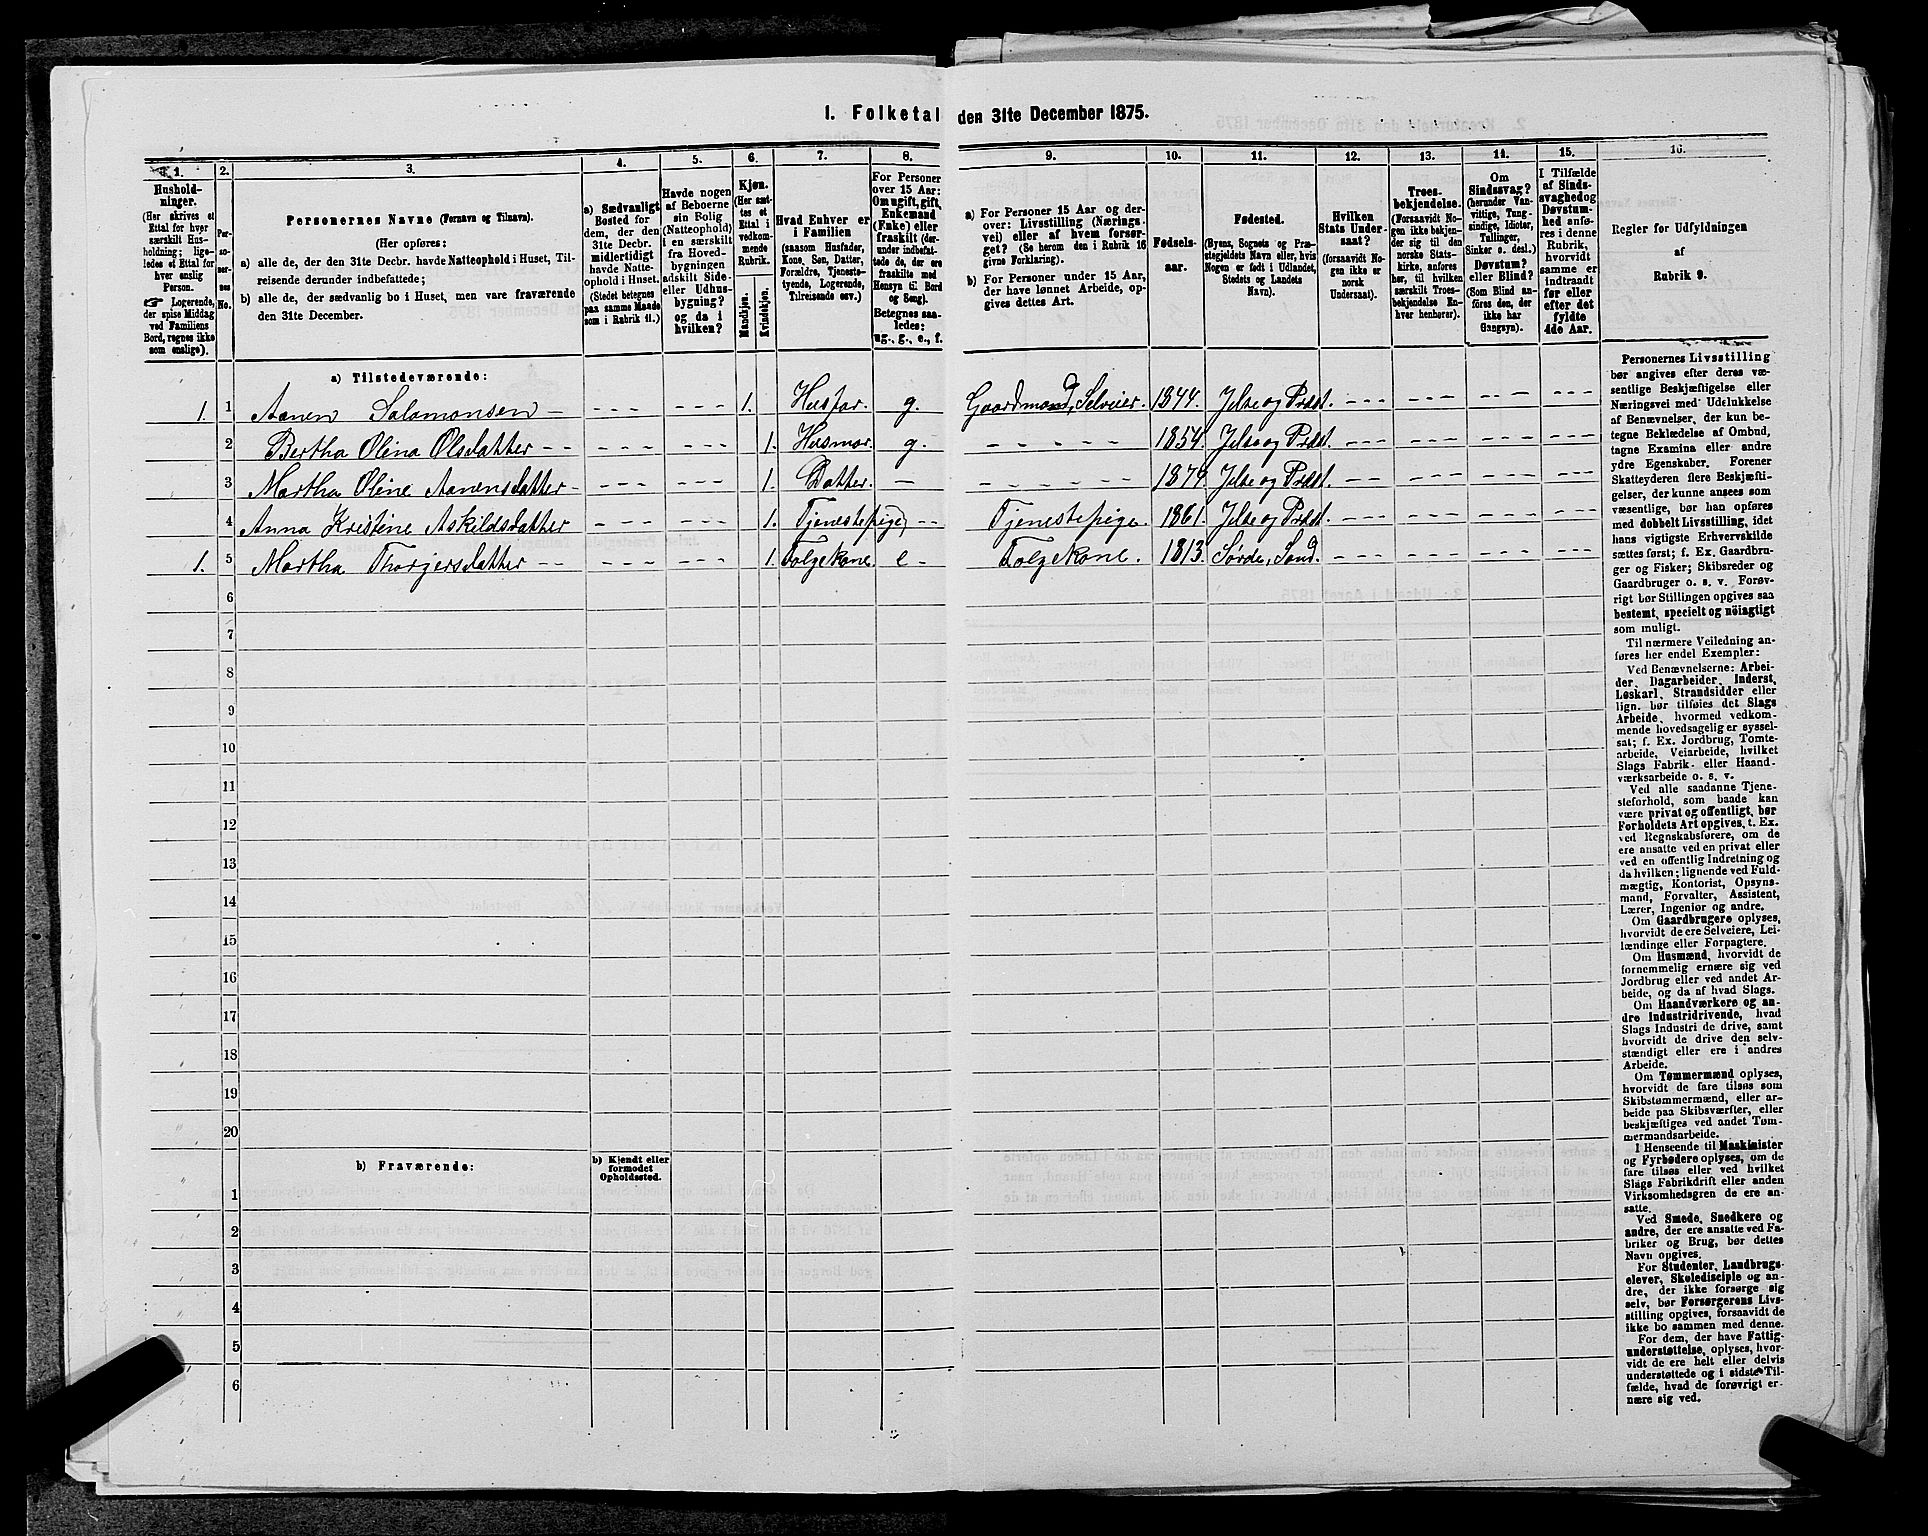 1. Folketal den 31te December 1875.
1. 2. 3. 4. 5. 6. 7. 8. 9. 10. 11. 12. 13. 14. 15. 16.
Hushold-
ninger.
(Her skrives et
Ettal for hver
særskilt Hus-
holdning; lige-
ledes et Ettal for
hver enslig
Person.
☞ Logerende,
der spise Middag
ved Familiens
Bord, regnes ikke
som enslige).
Per-
so-
ner-
nes
No.
Personernes Navne (Fornavn og Tilnavn).
(Her opføres:
a) alle de, der den 31te Decbr. havde Natteophold i Huset, Til-
reisende derunder indbefattede;
b) alle de, der sædvanlig bo i Huset, men vare fraværende
den 31te December.
a) Sædvanligt
Bosted for
dem, der den
31te Decbr.
midlertidigt
havde Natte-
ophold i Huset.
(Stedet betegnes
paa samme Maade
som i Rubrik 11.)
Havde nogen
af Beboerne
sin Bolig
(Natteophold)
i en særskilt
fra Hoved-
bygningen
adskilt Side-
eller Udhus-
bygning?
og da i
hvilken?
Kjøn.
(Her sæt-
tes et
Ettal i
vedkom-
mende
Rubrik.
Mandkjøn.
Kvindekjøn.
Hvad Enhver er
i Familien
(saasom Husfader,
Kone, Søn, Datter,
Forældre, Tjeneste-
tyende, Logerende,
Tilreisende osv.)
For Personer
over 15 Aar:
Om ugift, gift,
Enkemand
(Enke) eller
fraskilt (der-
under indbefat-
tede de, der ere
fraskilte med
Hensyn til Bord
og Seng).
Betegnes saa-
ledes:
ug., g., e., f.
a) For Personer 15 Aar og der-
over: Livsstilling (Nærings-
vei) eller af hvem forsør-
get? (Se herom den i Rubrik 16
givne Forklaring).
b) For Personer under 15 Aar,
der have lønnet Arbeide, op-
gives dettes Art.
Fødsels-
aar.
Fødested.
(Byens, Sognets og Præ-
stegjeldets Navn eller, hvis
Nogen er født i Udlandet,
Stedets og Landets
Navn).
Hvilken
Stats Under-
saat?
(forsaavidt No-
gen ikke er
norsk
Undersaat).
Troes-
bekjendelse.
(Forsaavidt No-
gen ikke bekjen-
der sig til den
norske Stats-
kirke, anføres
her, til hvilken
særskilt Troes-
bekjendelse En-
hver henhører).
Om
Sindssvag?
(herunder Van-
vittige, Tung-
sindige, Idioter,
Tullinger,
Sinker o. desl.)
Døvstum?
eller Blind?
(Som Blind an-
føres den, der
ikke har
Gangsyn).
I Tilfælde
af Sinds-
svaghed og
Døvstum-
hed anfø-
res i denne
Rubrik,
hvorvidt
samme er
indtraadt
før eller
efter det
fyldte
4de Aar.
Regler for Udfyldningen
af
Rubrik 9.
a) Tilstedeværende:
1. 1 Aanen Salamonsen 1. Husfar. g. Gaardmand, Selveier. 1844. Jelse og Præst.
2 Bertha Olina Olsdatter 1. Husmor. g. 1854. Jelse og Præst.
3 Martha Oline Aanensdatter 1. Datter. 1874. Jelse og Præst.
4 Anna Kristine Askildsdatter 1. Tjenestepige Tjenestepige. 1861. Jelse og Præst.
1. 5 Martha Thorgersdatter 1. Folgekone. e Folgekone. 1813. Sørde, Sand.
6
7
8
9
10
11
12
13
14
15
16
17
18
19
20
b) Fraværende:
b) Kjendt eller
formodet
Opholdssted.
1
2
3
4
5
6
Personernes Livsstilling
bør angives efter deres væ-
sentlige Beskjæftigelse eller
Næringsvei med Udelukkelse
af Benævnelser, der kun be-
tegne Beklædelse af Ombud,
tagne Examina eller andre
ydre Egenskaber. Forener
Skatteyderen flere Beskjæfti-
gelser, der kunne ansees som
væsentlige, bør han opføres
med dobbelt Livsstilling, idet
hans vigtigste Erhvervskilde
sættes først; f. Ex. Gaardbru-
ger og Fisker; Skibsreder og
Gaardbruger o. s. v. Forøv-
rigt bør Stillingen opgives saa
bestemt, specielt og nöiagtigt
som muligt.
Til nærmere Veiledning an-
føres her endel Exempler:
Ved Benævnelserne: Arbei-
der, Dagarbeider, Inderst,
Løskarl, Strandsidder eller
lign. bør tilføies det Slags
Arbeide, hvormed vedkom-
mende hovedsagelig er syssel-
sat; f. Ex. Jordbrug, Tomte-
arbeide, Veiarbeide, hvilket
Slags Fabrik- eller Haand-
værksarbeide o. s. v.
Ved alle saadanne Tjene-
steforhold, som baade kan
være privat og offentligt, bør
Forholdets Art opgives, t. Ex.
ved Regnskabsførere, om de
ere ansatte ved en privat eller
ved en offentlig Indretning og
da hvilken; lignende ved Fuld-
mægtig, Kontorist, Opsyns-
mand, Forvalter, Assistent,
Lærer, Ingeniør og andre.
Om Gaardbrugere oplyses,
hvorvidt de ere Selveiere, Lei-
lændinge eller Forpagtere.
Om Husmænd, hvorvidt de
fornemmelig ernære sig ved
Jordbrug eller ved andet Ar-
beide, og da af hvad Slags.
Om Haandværkere og an-
dre Industridrivende, hvad
Slags Industri de drive, samt
hvorvidt de drive den selv-
stændigt eller ere i andres
Arbeide.
Om Tømmermænd oplyses,
hvorvidt de fare tilsøs som
Skibstømmermænd, eller ar-
beide paa Skibsværfter, eller
beskjæftiges ved andet Tøm-
mermandsarbeide.
I Henseende til Maskinister
og Fyrbødere oplyses, om de
fare tilsøs eller ved hvilket
Slags Fabrikdrift eller anden
Virksomhedsgren de ere an-
satte.
Ved Smede, Snedkere og
andre, der ere ansatte ved Fa-
briker og Brug, bør dettes
Navn opgives.
For Studenter, Landbrugs-
elever, Skoledisciple og an-
dre, der ikke forsørge sig
selv, bør Forsørgerens Livs-
stilling opgives, forsaavidt de
ikke bo sammen med denne.
For dem, der have Fattig-
understøttelse, oplyses, hvor-
vidt de ere helt eller delvis
understøttede og i sidste Til-
fælde, hvad de forøvrigt er-
nære sig ved.